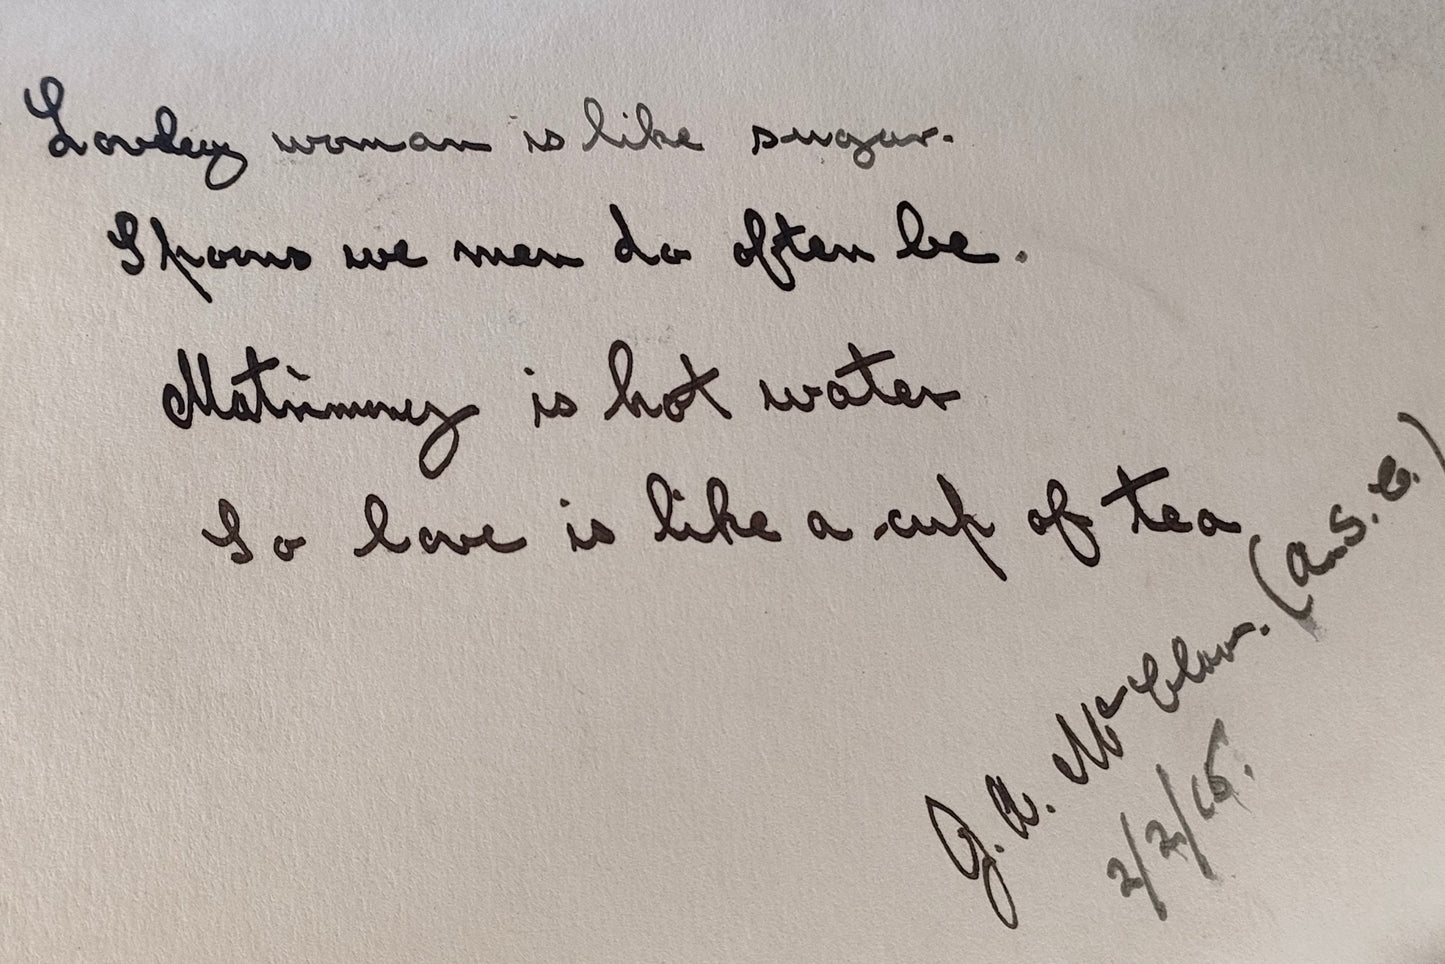 Lovley woman is like sugar.
Spoons we men do often be.
Matrimoney is hot water
So love is like a cup of tea
J. A. McClar. (A.S.C.)
2/2/16.